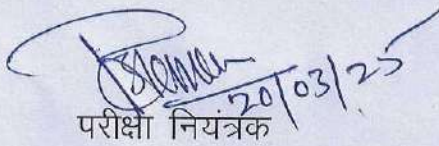 20/03/25
परीक्षा नियंत्रक